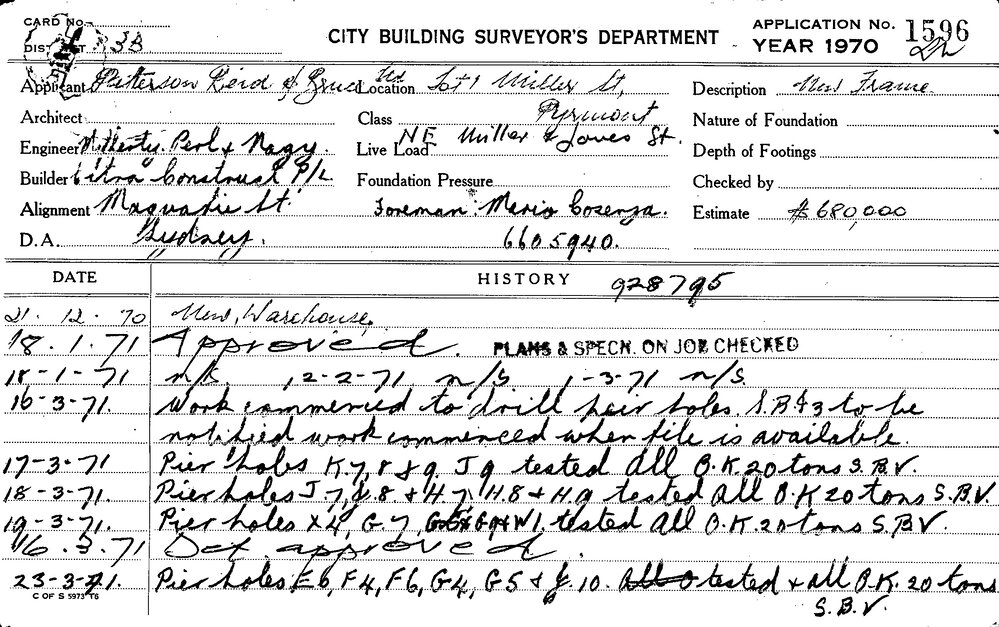 CARD No.
DISTRICT 3B
CITY BUILDING SURVEYOR'S DEPARTMENT
APPLICATION No. 1596
YEAR 1970
Applicant Patterson Reid & Bruce Ltd Location Lot 1 Miller St, Description New Frame.
Architect Class Pyrmont Nature of Foundation
Engineer Perl & Nagy. Live Load NE Miller & Jones St. Depth of Footings
Builder Citra Construct P/L Foundation Pressure Checked by
Alignment Macquarie St. Foreman: Mario Cosenza. Estimate $680,000
D.A. Sydney. 6605940.
DATE HISTORY 928795
21. 12. 70 New Warehouse.
18. 1. 71 Approved. PLANS & SPECN. ON JOB CHECKED
18-1-71 n/s. 12-2-71 n/s. 1-3-71 n/s.
16-3-71. Work commenced to drill peir holes. S.B.43 to be
notified work commenced when file is available.
17-3-71 Pier holes K7, 8 & 9 J9 tested All O.K 20 tons S.B.V.
18-3-71. Pier holes J7, J.8 & H7, H.8 & H.9 tested All O.K 20 tons S.B.V.
19-3-71. Pier holes X4, G.7, W1. tested All O.K. 20 tons S.B.V.
16. 3. 71 Det approved.
23-3-71. Pier holes E6, F4, F6, G4, G5 & J.10. tested & all O.K. 20 tons
S.B.V.
C OF S 5973 T6